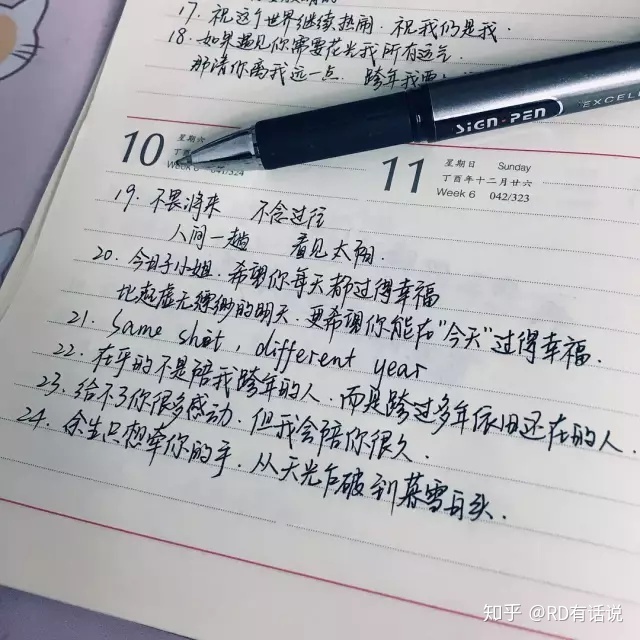 17. 祝这个世界继续热闹. 祝我们是我.
18. 如果遇见你需要花光我所有运气
那请你离我远一点. 跨年我要
SiGN·PEN EXCELL
10 星期六
丁酉
Week 6 041/324
11 星期日 Sunday
丁酉年十二月廿六
Week 6 042/323
19. 不畏将来 不念过往
人间一趟 看见太阳.
20. 今日子小姐. 希望你每天都过得幸福
比起虚无缥缈的明天. 更希望你能在"今天"过得幸福.
21. Same shit, different year
22. 在乎的不是陪我跨年的人. 而是跨过多年依旧还在的人.
23. 给不了你很多感动. 但我会陪你很久.
24. 余生只想牵你的手. 从天光乍破到暮雪白头.
知乎 @RD有话说